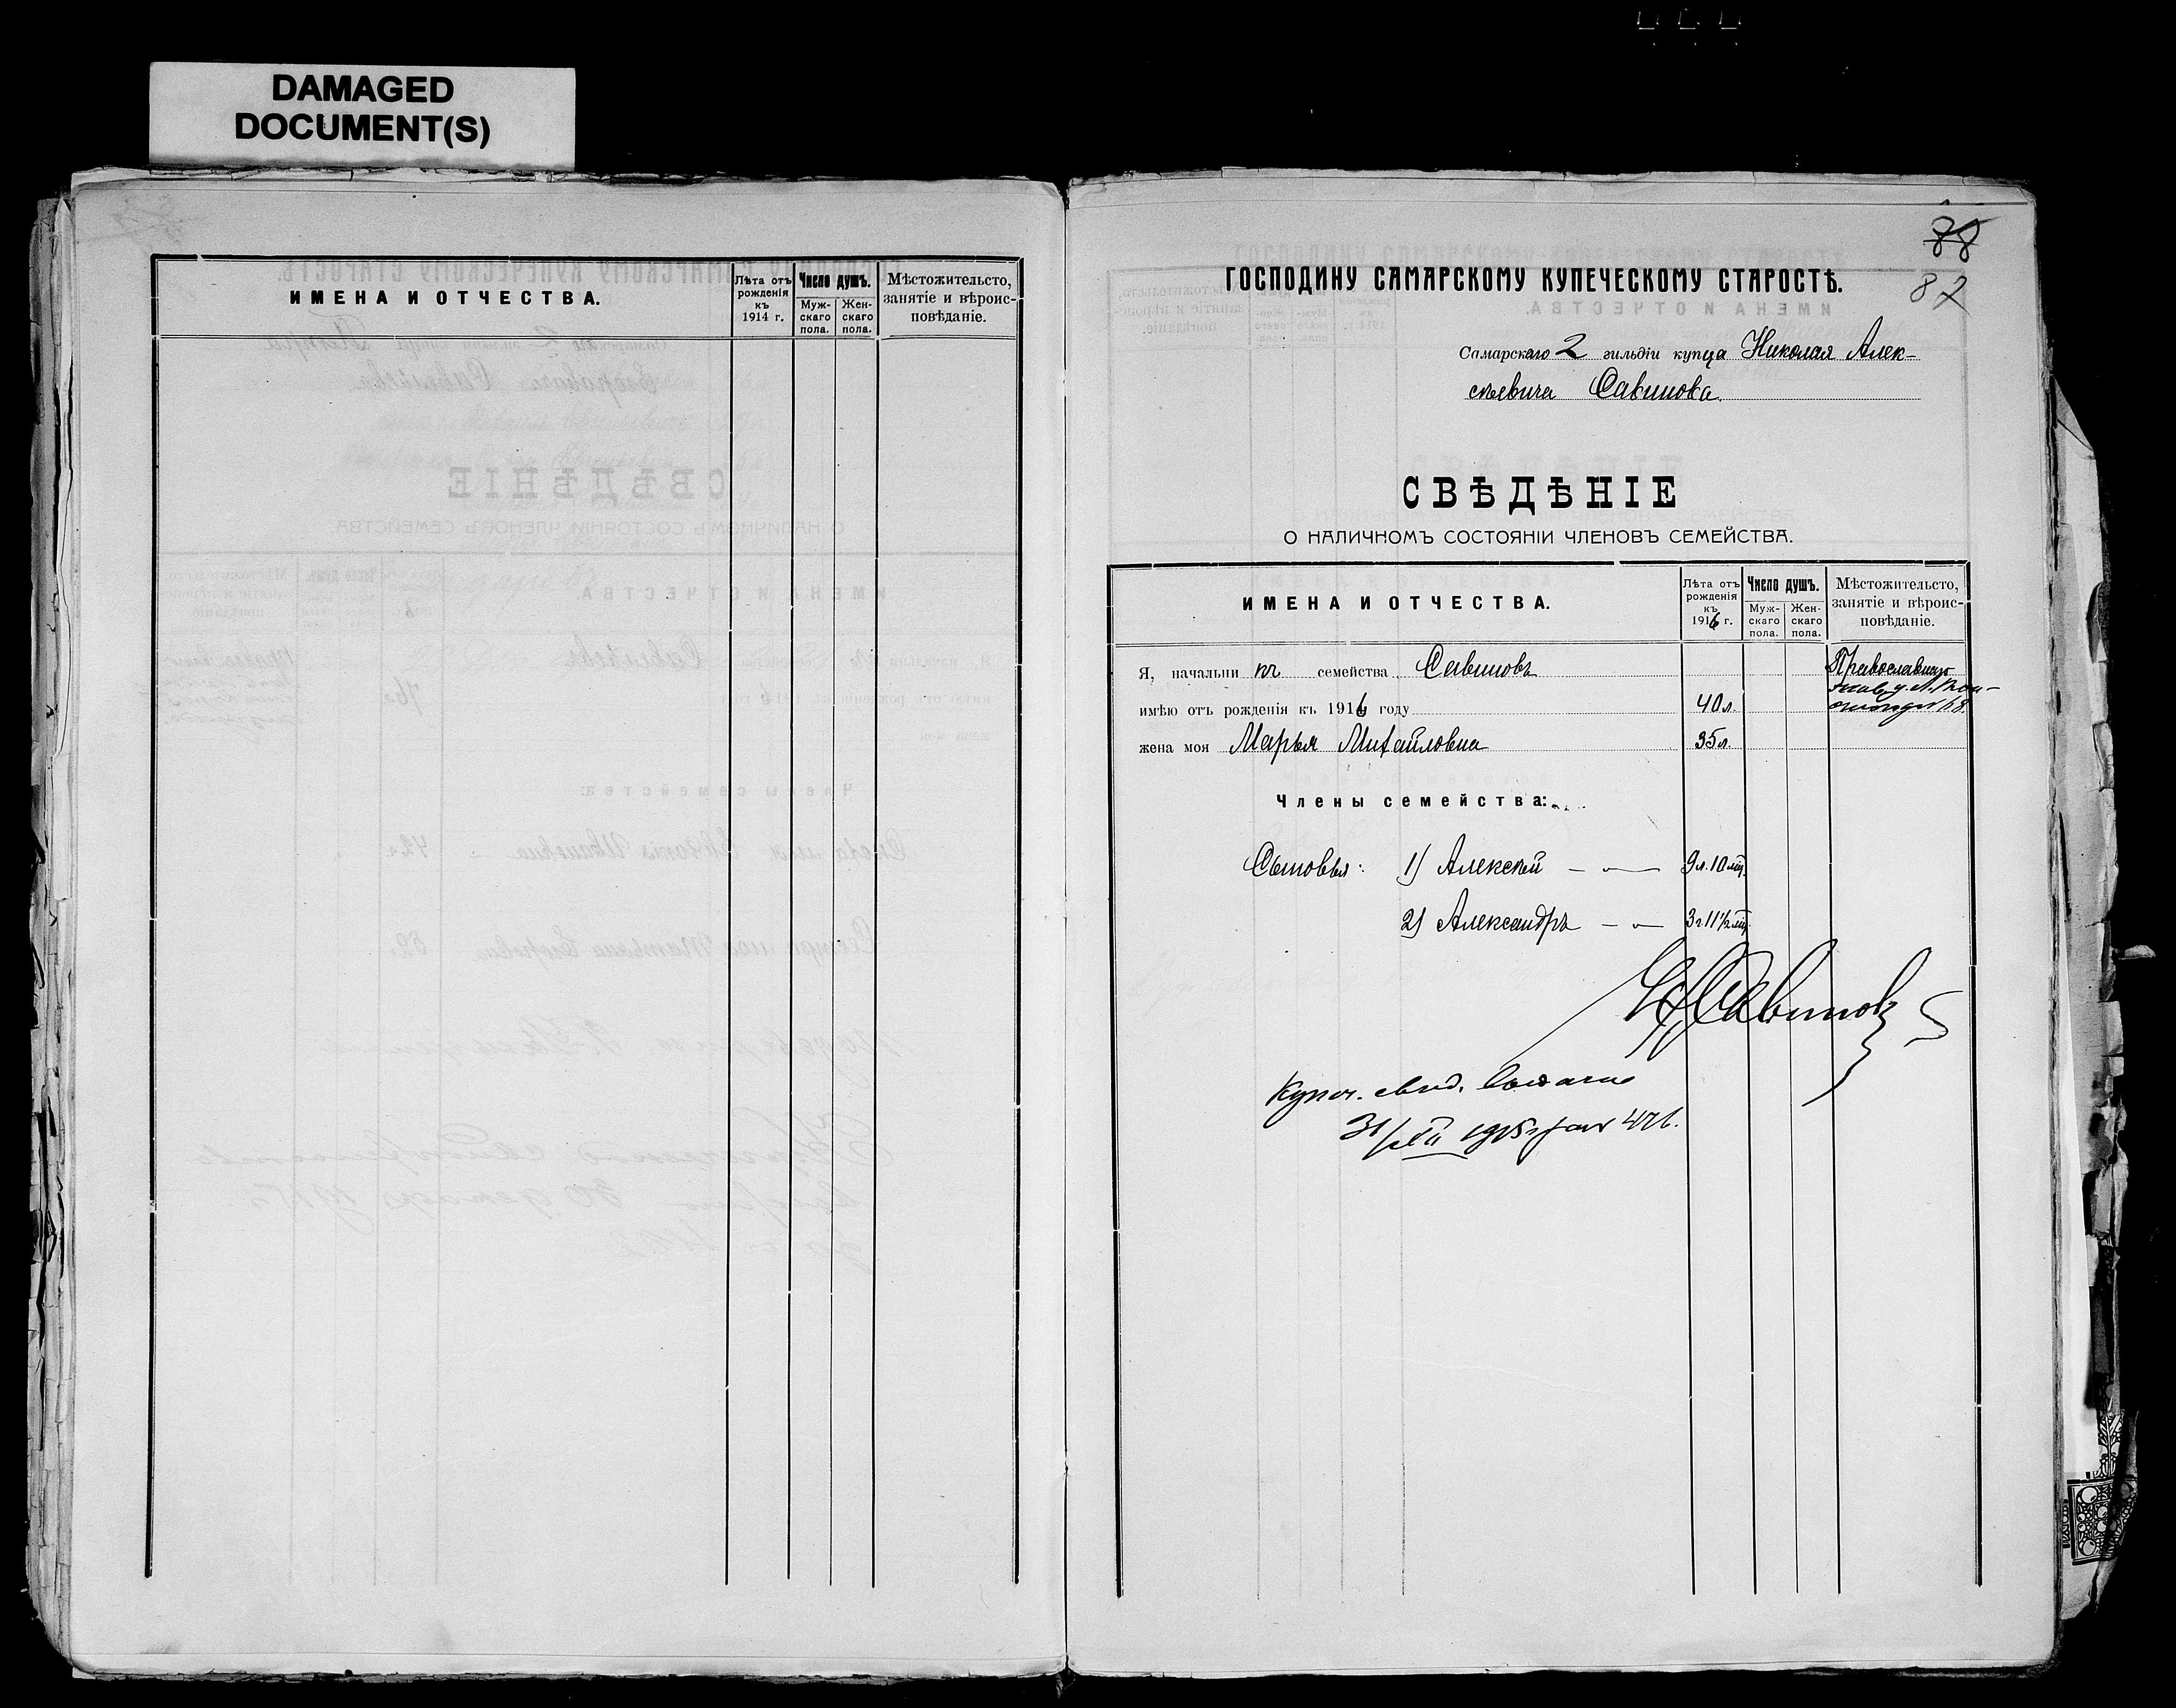 DAMAGED
DOCUMENT(S)
ИМЕНА И ОТЧЕСТВА.
Лѣта отъ рожденія къ 1914 г.
Число душъ.
Муж-скаго пола.
Жен-скаго пола.
Мѣстожительсто, занятіе и вѣроис-повѣданіе.
88
87
ГОСПОДИНУ САМАРСКОМУ КУПЕЧЕСКОМУ СТАРОСТѢ.
Самарскаго 2 гильдіи купца Николая Алек-
сѣевича Савинова.
СВѢДѢНІЕ
О НАЛИЧНОМЪ СОСТОЯНІИ ЧЛЕНОВЪ СЕМЕЙСТВА.
ИМЕНА И ОТЧЕСТВА.
Лѣта отъ рожденія къ 1916 г.
Число душъ.
Муж-скаго пола.
Жен-скаго пола.
Мѣстожительсто, занятіе и вѣроис-повѣданіе.
Я, начальникъ семейства Савиновъ
Православнаго
имѣю отъ рожденія къ 1916 году 40 л.
жена моя Марья Михайловна 35 л.
Члены семейства:
Сыновья: 1) Алексѣй — " — 9 л. 10 мц.
2) Александръ — " — 3 г 11½ мц.
Савиновъ
Купеч. свид.
31/XII 1915 г